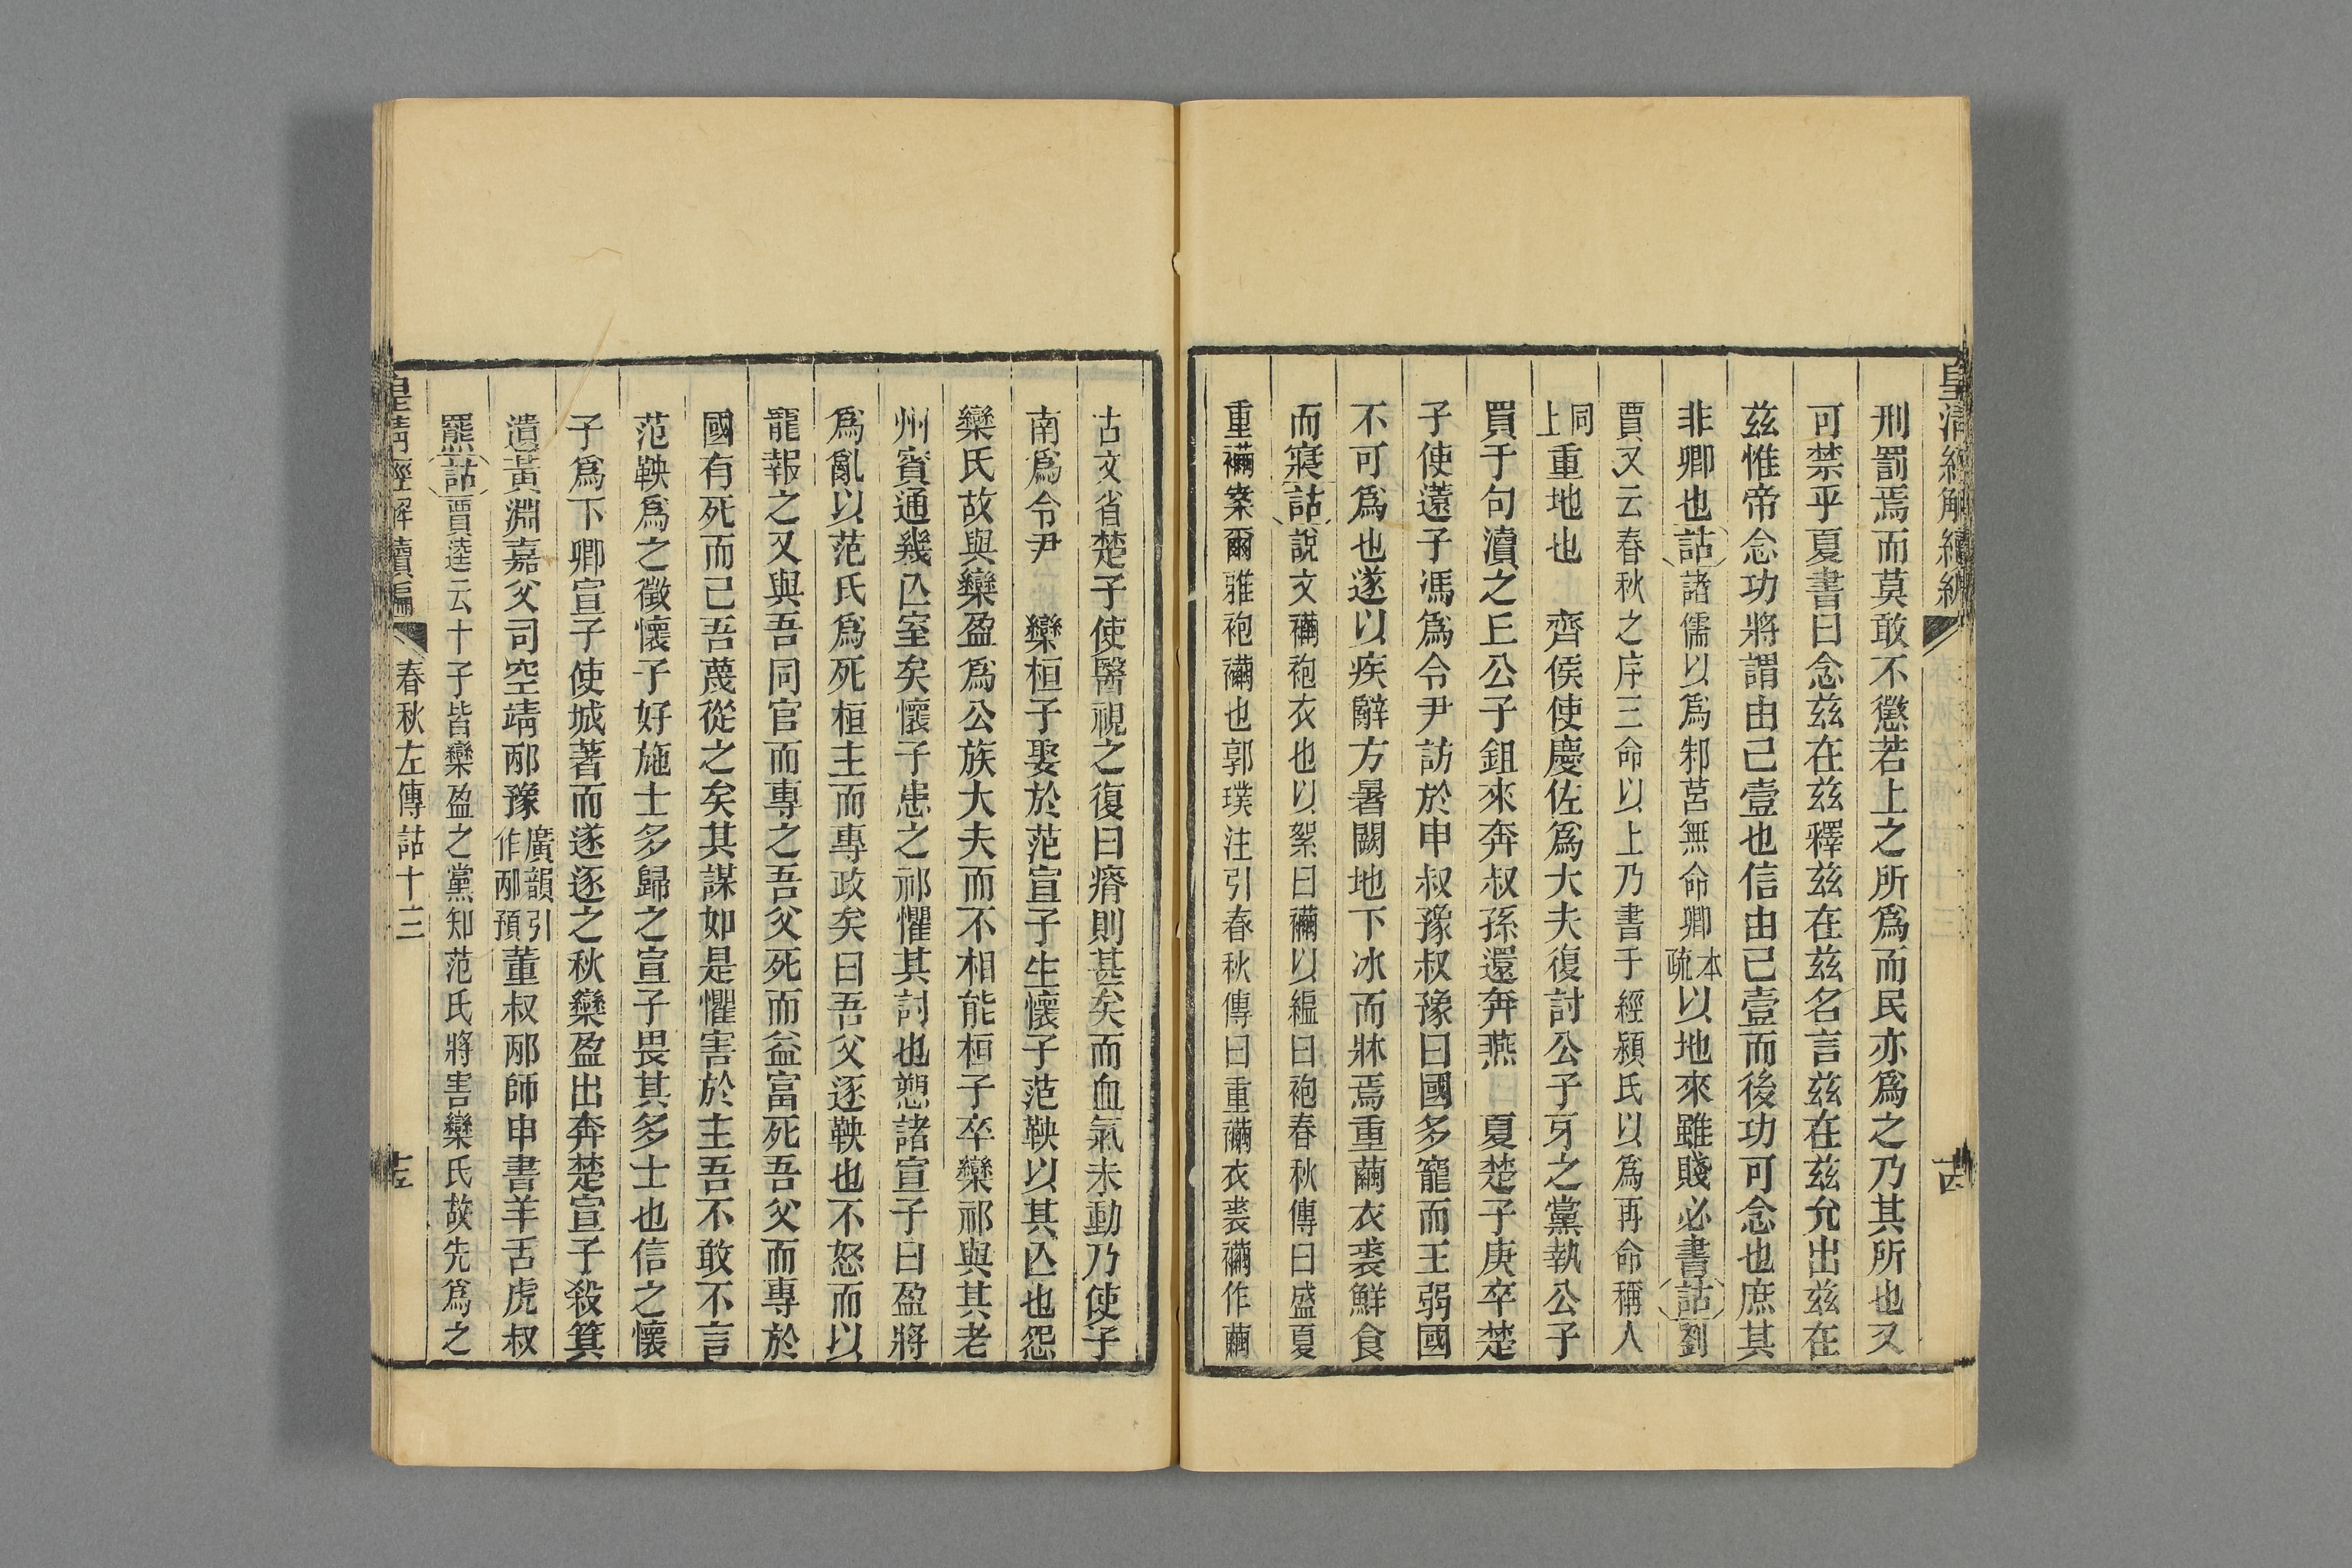 皇清經解續編
古
刑罰焉而莫敢不懲若上之所爲而民亦爲之乃其所也又
可禁乎夏書曰念茲在茲釋茲在茲名言茲在茲允出茲在
茲惟帝念功將謂由己壹也信由己壹而後功可念也庶其
非卿也詁諸儒以爲邾莒無命卿本疏以地來雖賤必書詁劉
賈又云春秋之序三命以上乃書于經潁氏以爲再命稱人
同上重地也 齊侯使慶佐爲大夫復討公子牙之黨執公子
買于句瀆之丘公子鉏來奔叔孫還奔燕 夏楚子庚卒楚
子使薳子馮爲令尹訪於申叔豫叔豫曰國多寵而王弱國
不可爲也遂以疾辭方暑闕地下冰而牀焉重繭衣裘鮮食
而寢詁說文襺袍衣也以絮曰襺以縕曰袍春秋傳曰盛夏
重襺案爾雅袍襺也郭璞注引春秋傳曰重襺衣裘襺作繭
古文省楚子使醫視之復曰瘠則甚矣而血氣未動乃使子
南爲令尹 欒桓子娶於范宣子生懷子范鞅以其亾也怨
欒氏故與欒盈爲公族大夫而不相能桓子卒欒祁與其老
州賓通幾亾室矣懷子患之祁懼其討也愬諸宣子曰盈將
爲亂以范氏爲死桓主而專政矣曰吾父逐鞅也不怒而以
寵報之又與吾同官而專之吾父死而益富死吾父而專於
國有死而已吾蔑從之矣其謀如是懼害於主吾不敢不言
范鞅爲之徵懷子好施士多歸之宣子畏其多士也信之懷
子爲下卿宣子使城著而遂逐之秋欒盈出奔楚宣子殺箕
遺黃淵嘉父司空靖邴豫廣韻引作邴預董叔邴師申書羊舌虎叔
羆詁賈逵云十子皆欒盈之黨知范氏將害欒氏故先爲之
皇清經解續編
春秋左傳詁十三